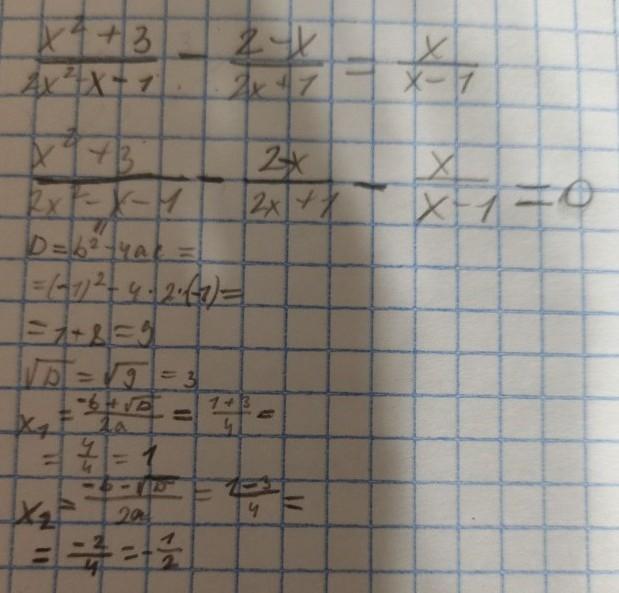 x² + 3 / 2x² - x - 1 - 2 - x / 2x + 1 = x / x - 1
x² + 3 / 2x² - x - 1 - 2-x / 2x + 1 - x / x - 1 = 0
D = b² - 4ac =
= (-1)² - 4 · 2 · (-1) =
= 1 + 8 = 9
√D = √9 = 3
x₁ = -b + √D / 2a = 1 + 3 / 4 =
= 4/4 = 1
x₂ = -b - √D / 2a = 1 - 3 / 4 =
= -2/4 = -1/2